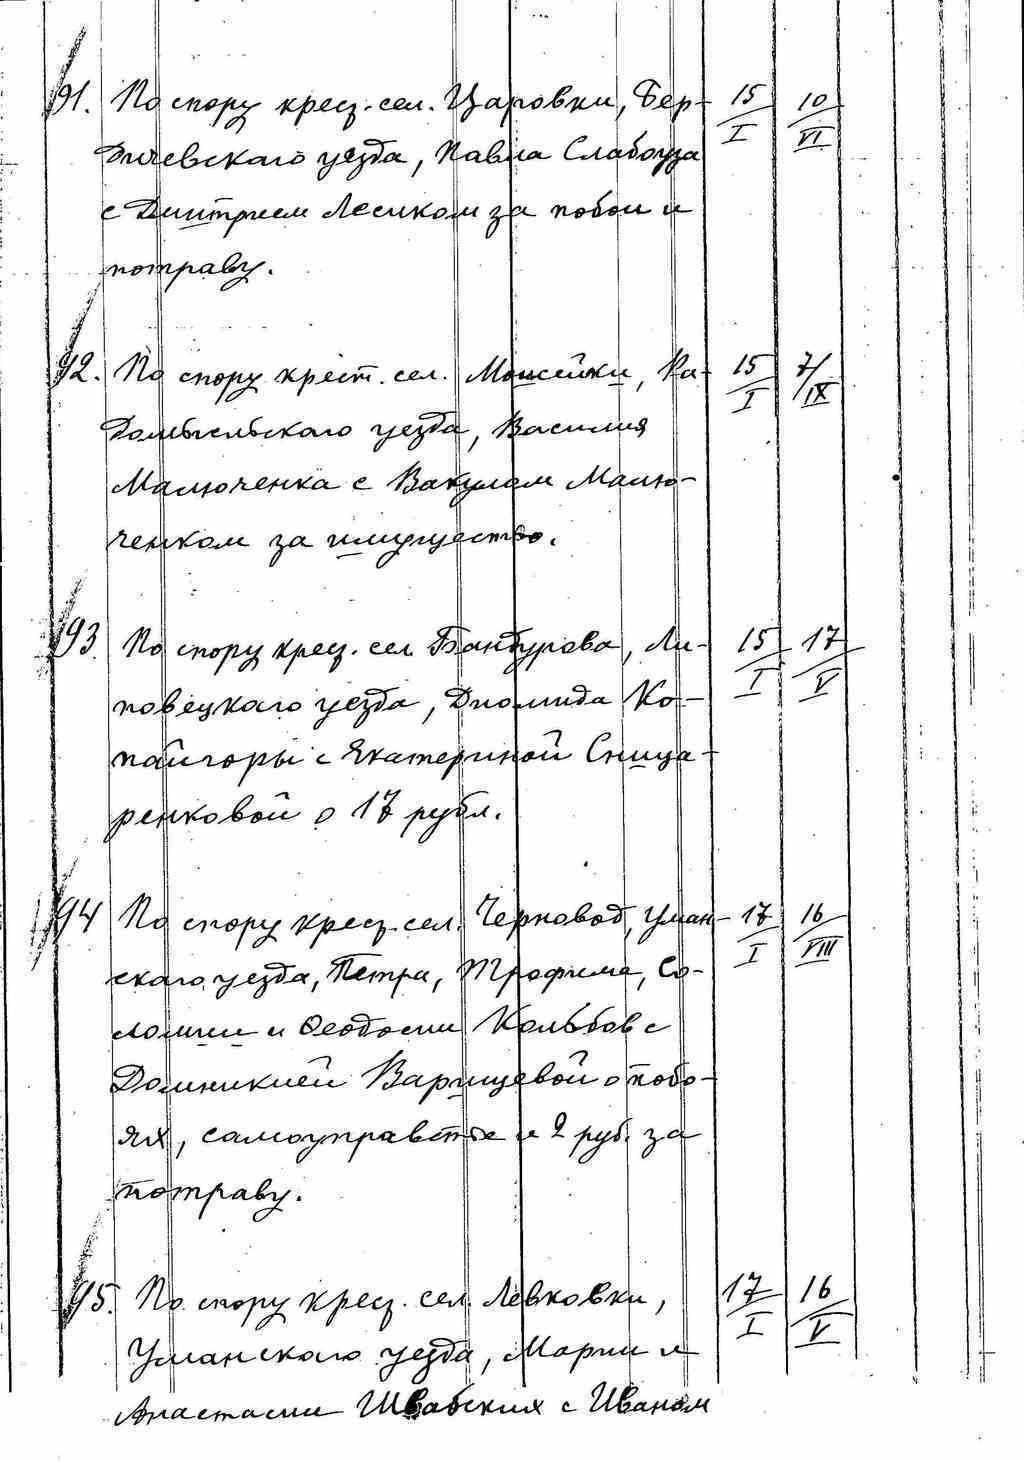 91. По спору крест. сел. Царовки, Бер- 15/I 10/VI
дичевскаго уезда, Павла Слабоуза
с Дмитрием Лесиком за побои и
потраву.
92. По спору крест. сел. Моисейки, Ра- 15/I 7/IX
домысльскаго уезда, Василия
Малюченка с Вакулом Малю-
ченком за имущество.
93. По спору крест. сел. Бандурова, Ли- 15/I 17/V
повецкаго уезда, Диомида Ко-
пайгоры с Екатериной Сница-
ренковой о 17 рубл.
94 По спору крест. сел. Черновод, Уман- 17/I 16/VIII
скаго уезда, Петра, Трофима, Со-
ломии и Феодосии Кольбов с
Домникией Варищевой о побо-
ях, самоуправстве и 2 руб. за
потраву.
95. По спору крест. сел. Левковки, 17/I 16/V
Уманскаго уезда, Марии и
Анастасии Швабских с Иваном